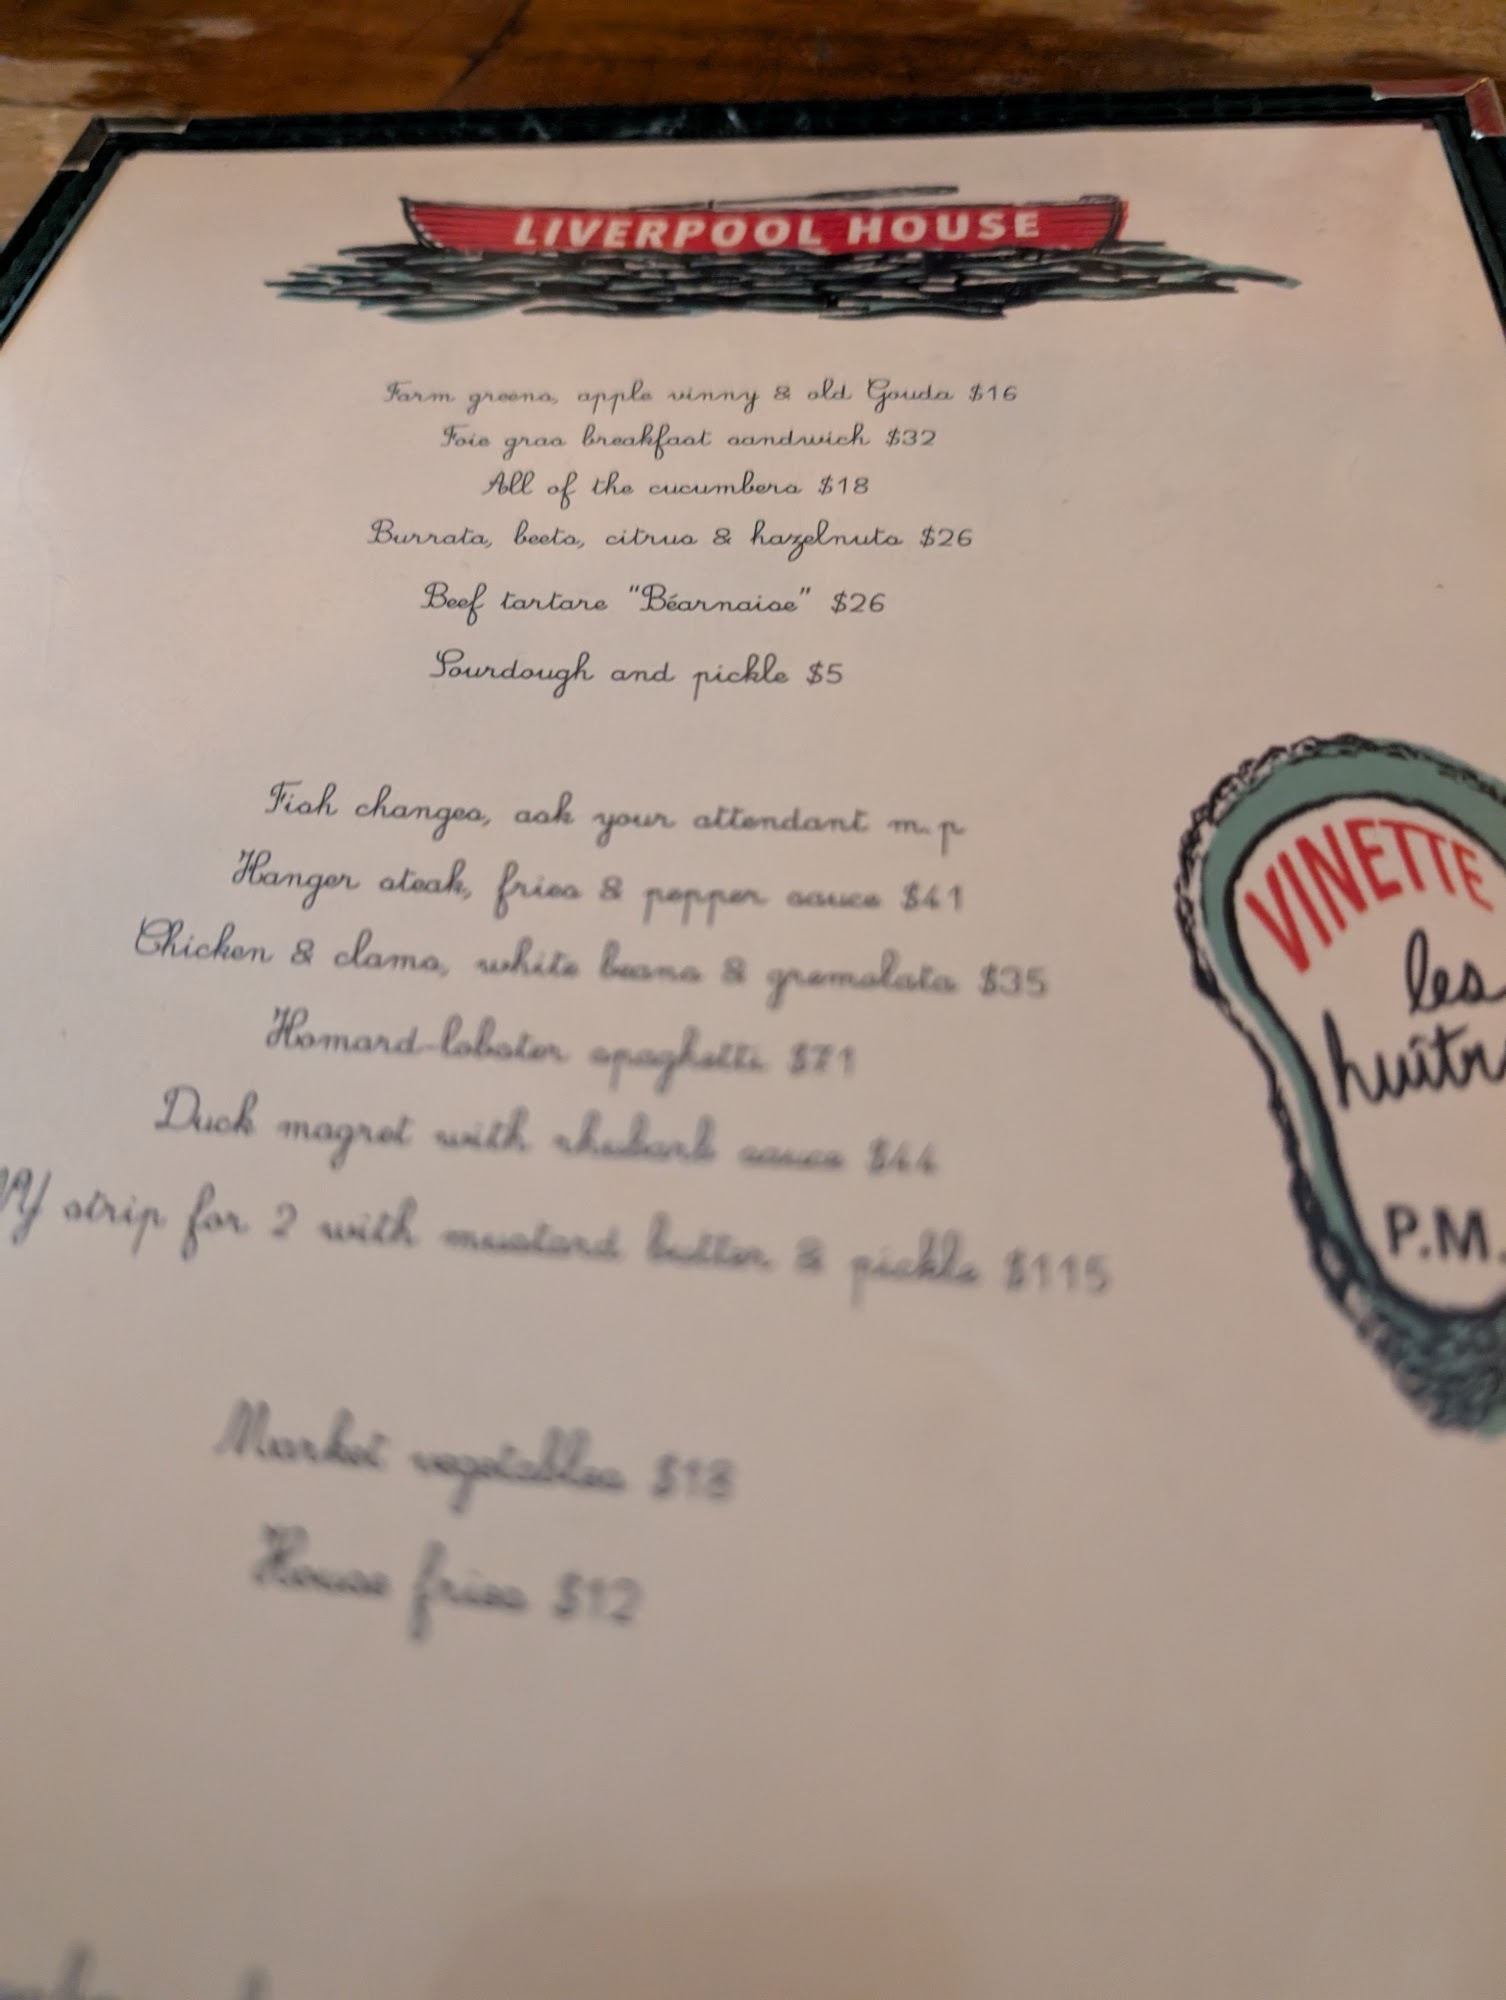 LIVERPOOL HOUSE
Farm greens, apple vinny & old Gouda $16
Foie gras breakfast sandwich $32
All of the cucumbers $18
Burrata, beets, citrus & hazelnuts $26
Beef tartare "Béarnaise" $26
Sourdough and pickle $5
Fish changes, ask your attendant m.p
Hanger steak, fries & pepper sauce $41
Chicken & clams, white beans & gremolata $35
Homard-lobster spaghetti $71
Duck magret with rhubarb sauce $44
NY strip for 2 with mustard butter & pickle $115
Market vegetables $18
House fries $12
VINETTE
les
P.M.